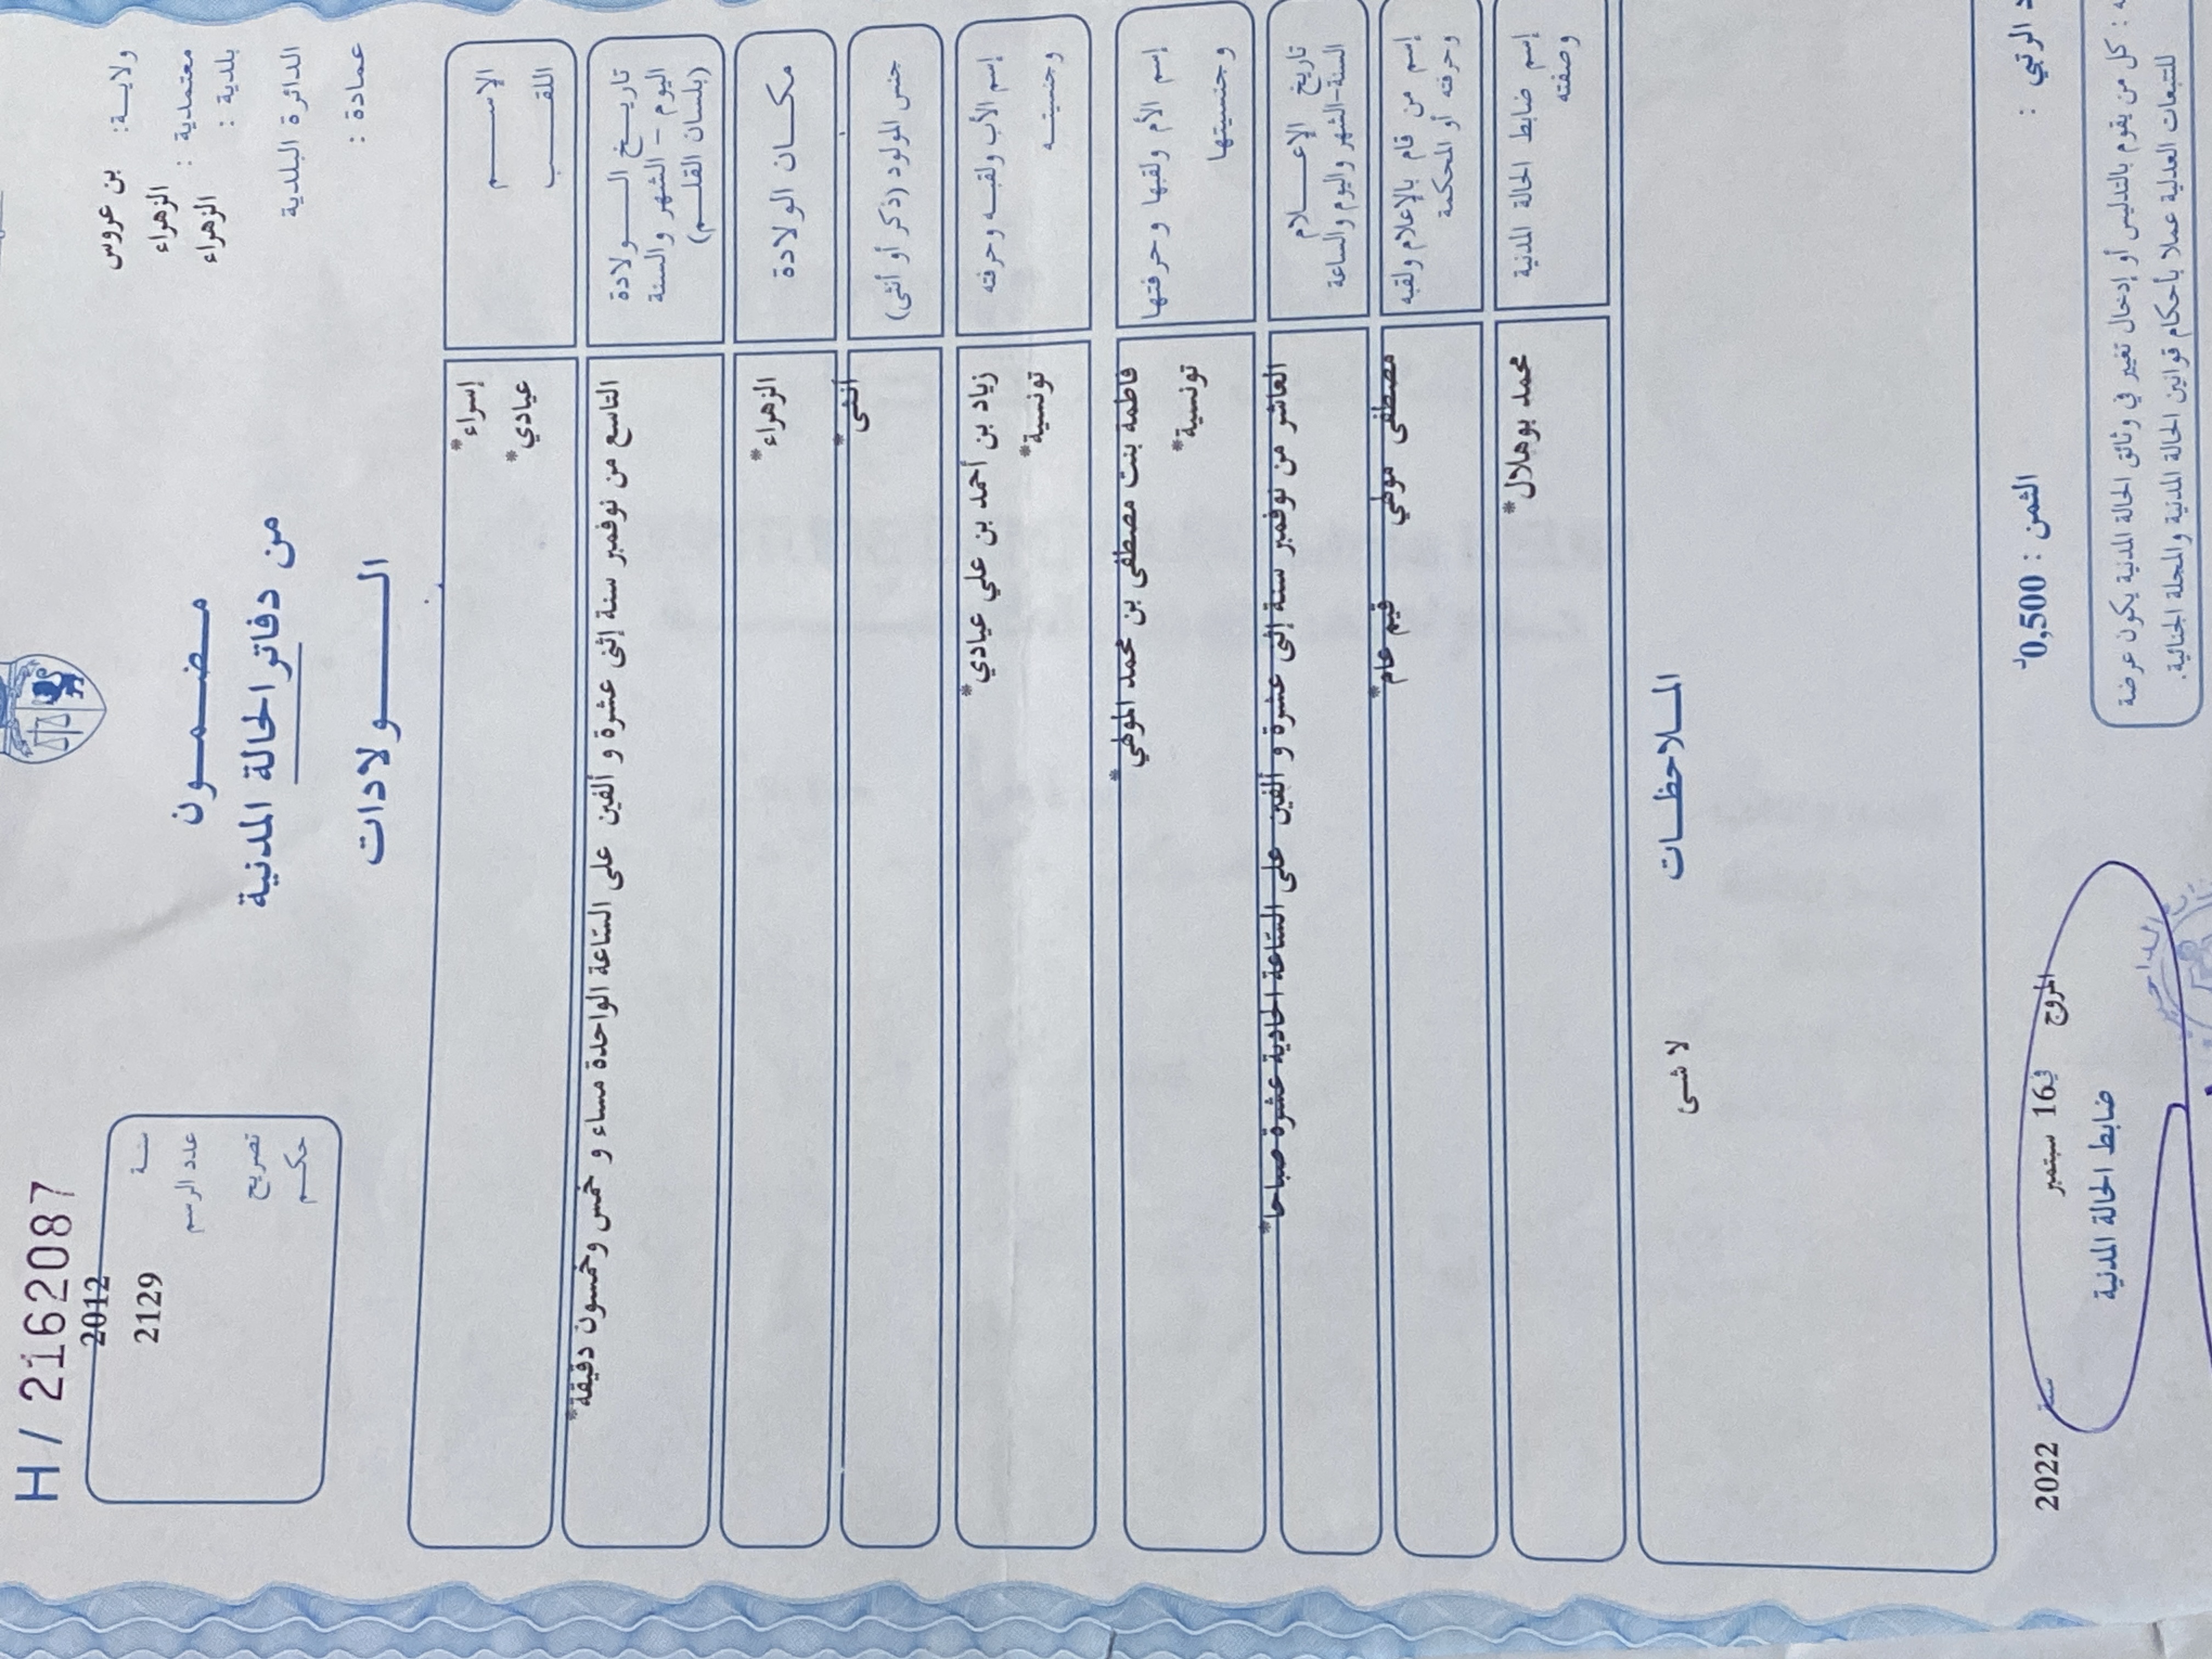 ولاية: بن عروس
معتمدية : الزهراء
بلدية : الزهراء
الدائرة البلدية
عمادة :
مضمون
من دفاتر الحالة المدنية
الولادات
H/ 2162087
سنة 2012
عدد الرسم 2129
تصريح
حكم
الإسم إسراء*
اللقب عيادي*
تاريخ الولادة
اليوم - الشهر والسنة
(بلسان القلم)
التاسع من نوفمبر سنة إثنى عشرة و ألفين على السّاعة الواحدة مساء و خمس وخمسون دقيقة*
مكان الولادة الزهراء*
جنس المولود (ذكر أو أنثى) أنثى*
إسم الأب ولقبه وحرفته زياد بن أحمد بن علي عيادي*
وجنسيته تونسية*
إسم الأم ولقبها وحرفتها فاطمة بنت مصطفى بن محمد الموهي*
وجنسيتها تونسية*
تاريخ الإعلام
السنة-الشهر واليوم والساعة
العاشر من نوفمبر سنة إثنى عشرة و ألفين على السّاعة الحادية عشرة صباحا*
إسم من قام بالإعلام ولقبه
وحرفته أو المحكمة
مصطفى موهي قيم عام*
إسم ضابط الحالة المدنية
وصفته
محمد بوهلال*
الملاحظات
لا شئ
الرتبي :
الثمن : 0,500د
المروج في 16 سبتمبر سنة 2022
ضابط الحالة المدنية
: كل من يقوم بالتدليس أو إدخال تغيير في وثائق الحالة المدنية يكون عرضة
للتتبعات العدلية عملا بأحكام قوانين الحالة المدنية والمجلة الجنائية.